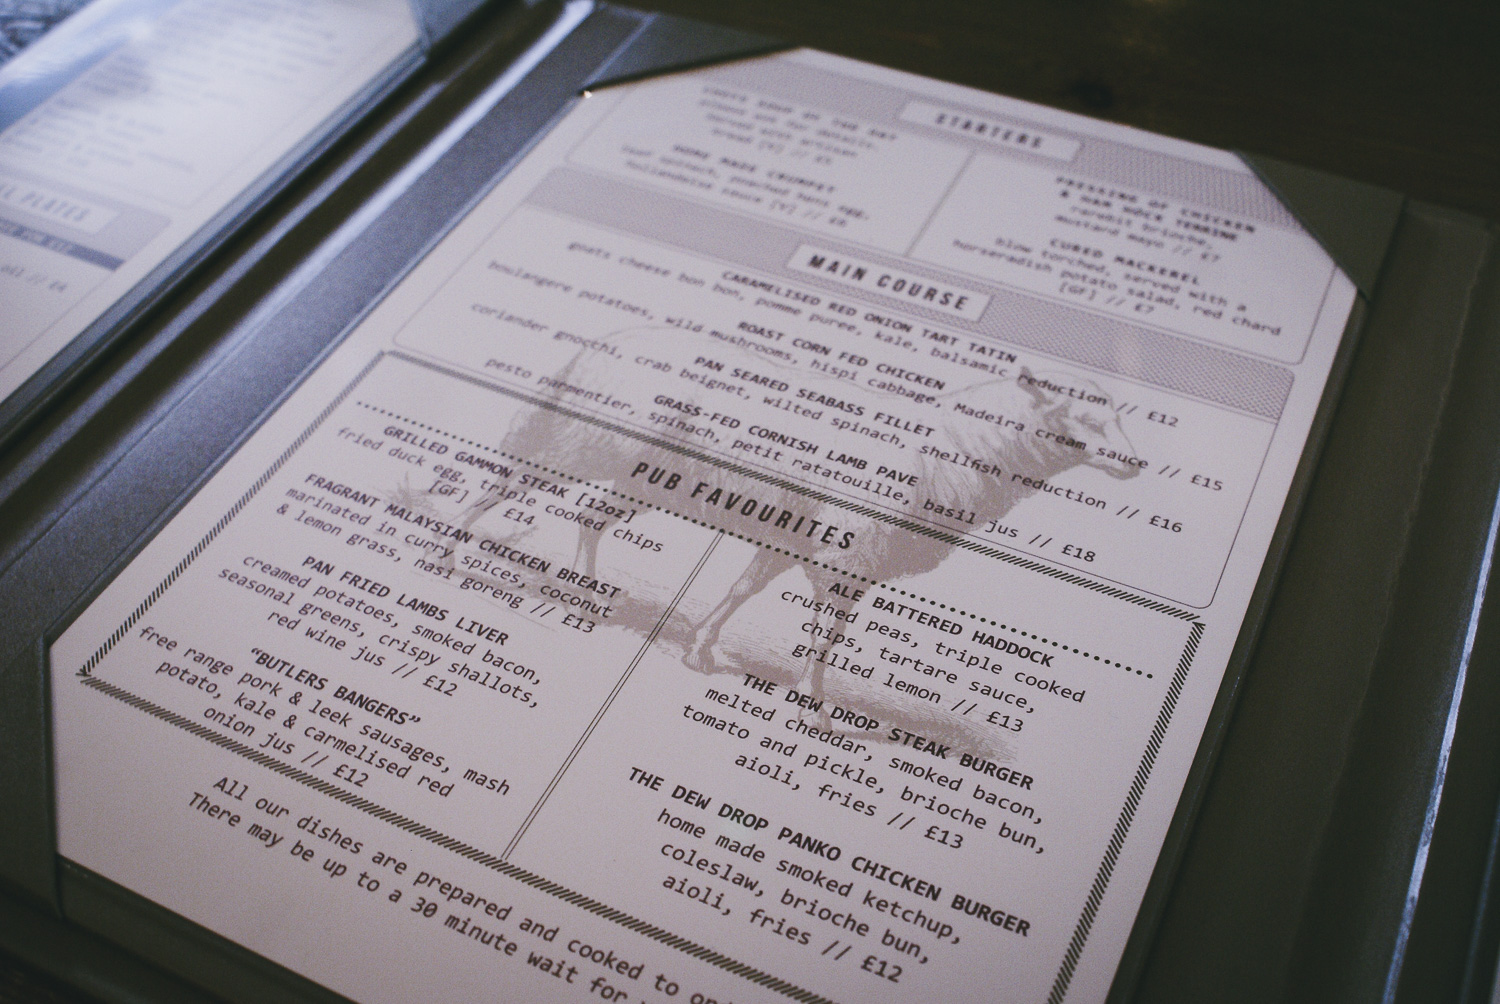 STARTERS
HOME MADE CRUMPET
poached hens egg,
hollandaise sauce [V] // £6
PRESSING OF CHICKEN
& HAM HOCK TERRINE
rarebit brioche,
mustard mayo // £7
CURED MACKEREL
blow torched, served with a
horseradish potato salad, red chard
[GF] // £7
MAIN COURSE
CARAMELISED RED ONION TART TATIN
goats cheese bon bon, pomme puree, kale, balsamic reduction // £12
ROAST CORN FED CHICKEN
boulangere potatoes, wild mushrooms, hispi cabbage, Madeira cream sauce // £15
PAN SEARED SEABASS FILLET
coriander gnocchi, crab beignet, wilted spinach, shellfish reduction // £16
GRASS-FED CORNISH LAMB PAVE
pesto parmentier, spinach, petit ratatouille, basil jus // £18
PUB FAVOURITES
GRILLED GAMMON STEAK [12oz]
fried duck egg, triple cooked chips
[GF] // £14
FRAGRANT MALAYSIAN CHICKEN BREAST
marinated in curry spices, coconut
& lemon grass, nasi goreng // £13
PAN FRIED LAMBS LIVER
creamed potatoes, smoked bacon,
seasonal greens, crispy shallots,
red wine jus // £12
“BUTLERS BANGERS”
free range pork & leek sausages, mash
potato, kale & carmelised red
onion jus // £12
ALE BATTERED HADDOCK
crushed peas, triple cooked
chips, tartare sauce,
grilled lemon // £13
THE DEW DROP STEAK BURGER
melted cheddar, smoked bacon,
tomato and pickle, brioche bun,
aioli, fries // £13
THE DEW DROP PANKO CHICKEN BURGER
home made smoked ketchup,
coleslaw, brioche bun,
aioli, fries // £12
All our dishes are prepared and cooked to
There may be up to a 30 minute wait for
PLATES